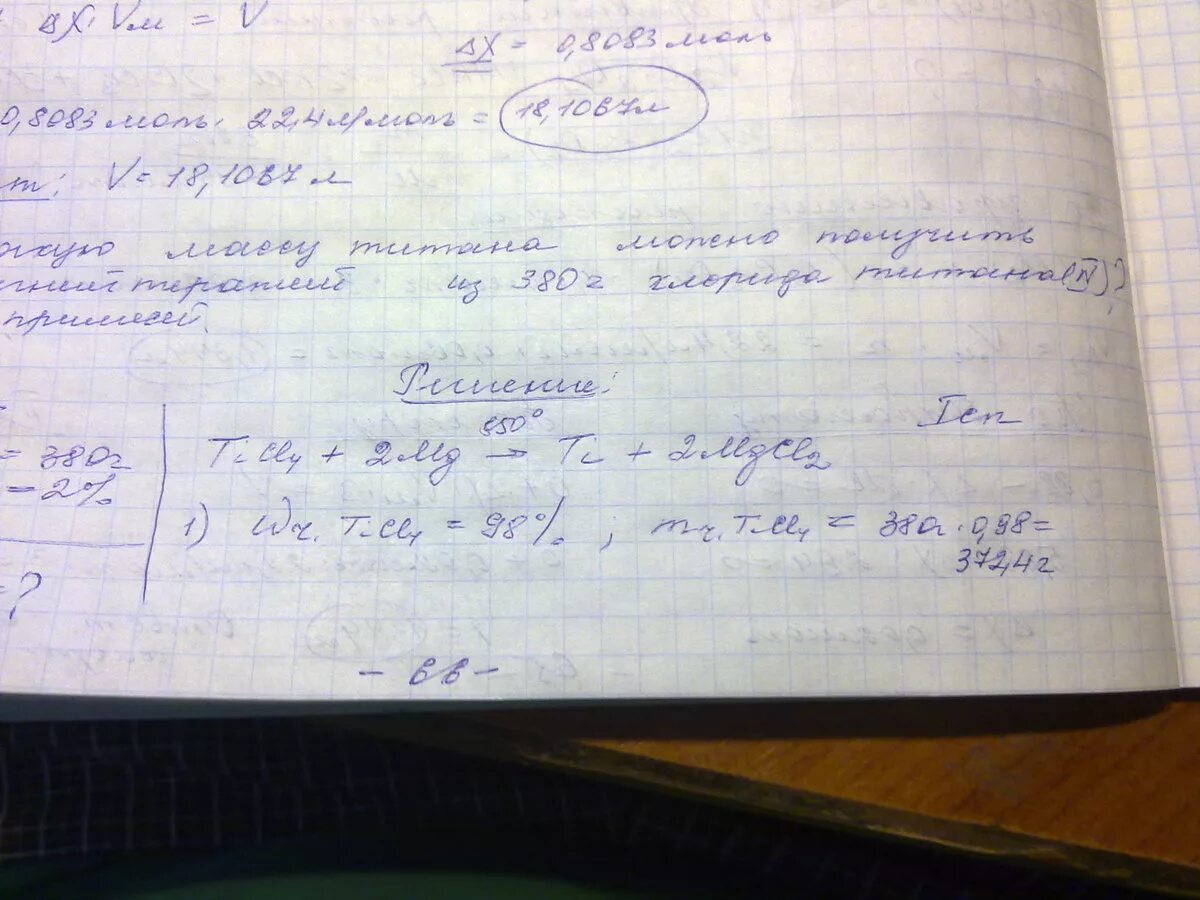 ΔX · Vм = V
ΔX = 0,8083 моль
0,8083 моль · 22,4 л/моль = 18,1067 л
т: V = 18,1067 л
массу титана можно получить
из 380 г хлорида титана (IV)?
примесей.
Решение:
Iсп
= 380 г
TiCl4 + 2Mg 850° → Ti + 2MgCl2
= 2%
1) Wч. TiCl4 = 98% ; mч. TiCl4 = 380г · 0,98 =
372,4 г
= ?
- 66 -